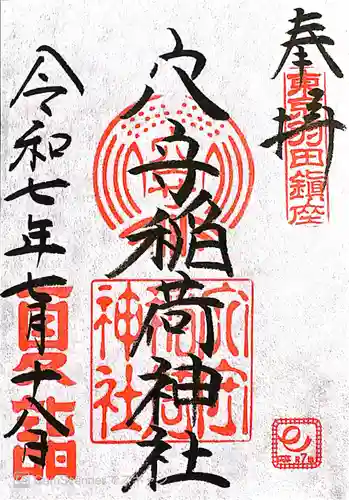 奉拝
東京羽田鎭座
穴守稲荷神社
穴守
稲荷
神社
令和七年七月十八日
夏詣
CamScanner